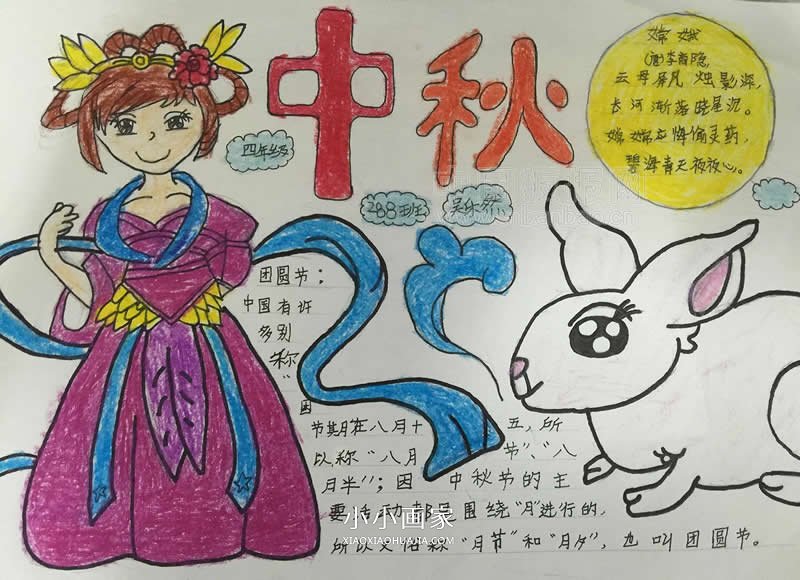 中秋
嫦娥
(唐)李商隐
云母屏风 烛影深,
长河渐落晓星沉。
嫦娥应悔偷灵药,
碧海青天夜夜心。
四年级
288班
团圆节：
中国有许
多别
称
因
节期在八月十五,所
以称“八月节”、“八
月半”；因中秋节的主
要活动都是围绕“月”进行的,
所以又俗称“月节”和“月夕”,也叫团圆节。
小小画家
XIAOXIAOHUAJIA.COM